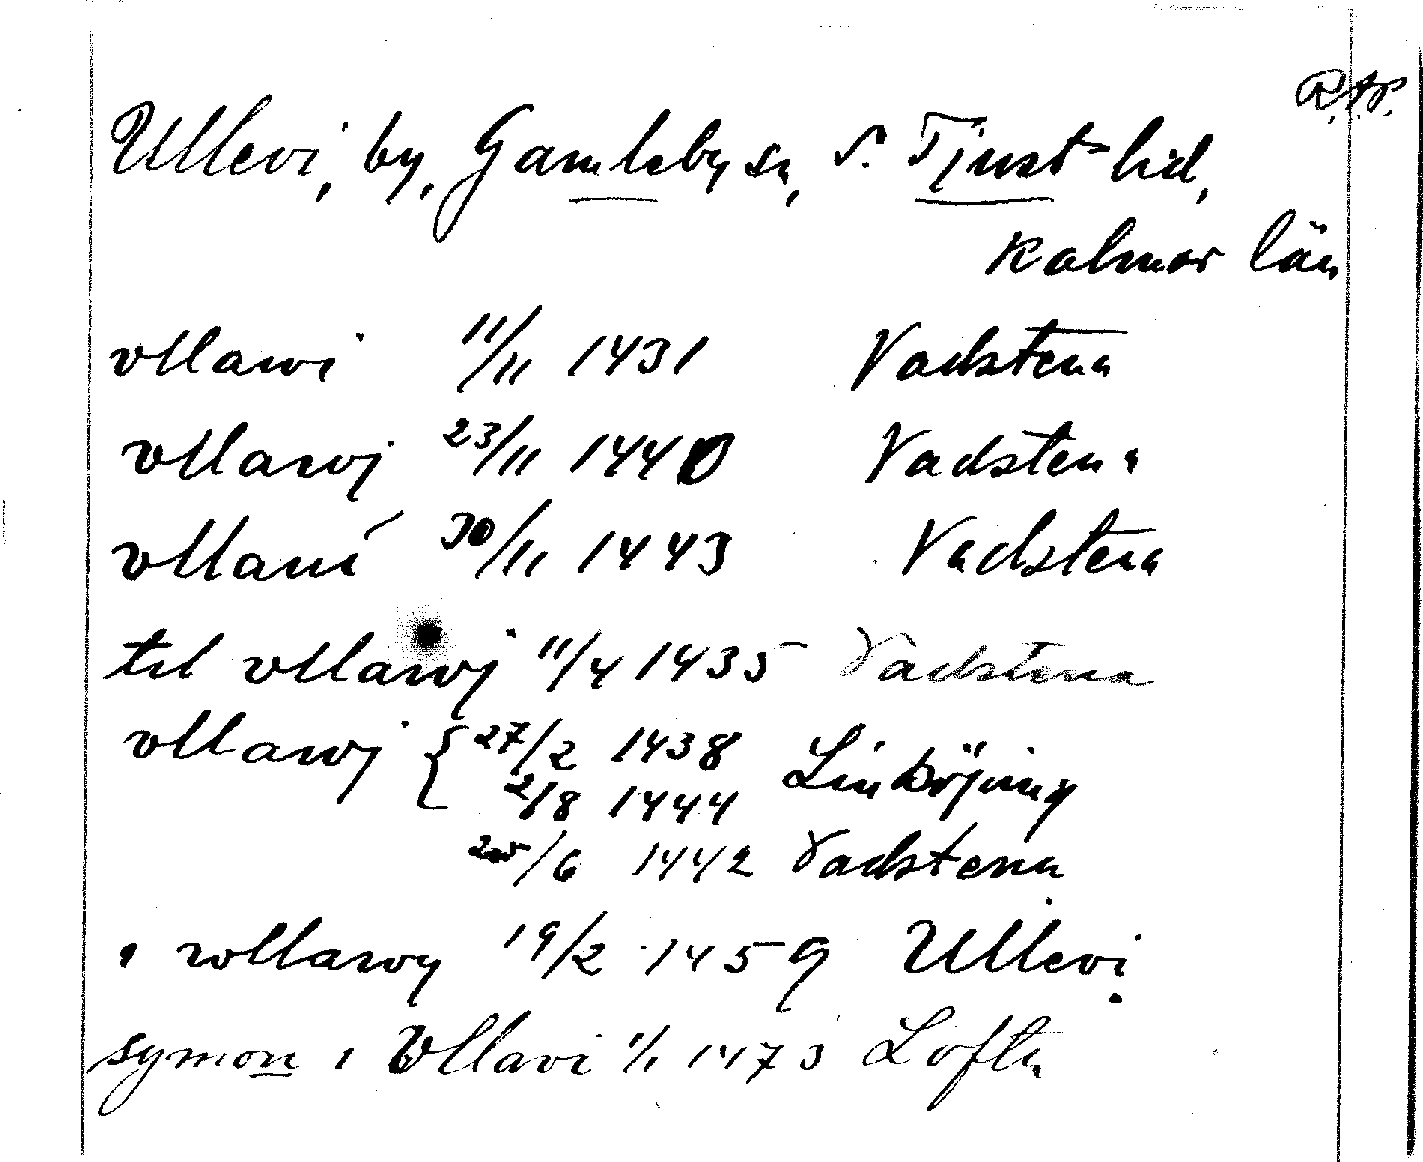 R.A.P.
Ullevi, by, Gamleby sn, S. Tjust hd,
Kalmar län
vllawi 11/11 1431 Vadstena
vllawj 23/11 1440 Vadstena
vllaui 30/11 1443 Vadstena
til vllawj 11/4 1435 Vadstena
vllawj { 27/2 1438 Linköping
2/8 1444
25/6 1442 Vadstena
i wllawy 19/2 1459 Ullevi
symon i Vllavi 1/1 1473 Lofta